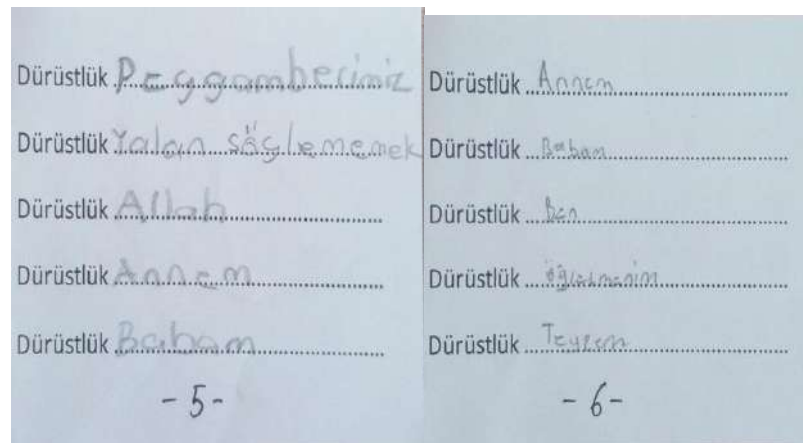 Dürüstlük Peygamberimiz
Dürüstlük Yalan söylememek
Dürüstlük Allah
Dürüstlük Annem
Dürüstlük Babam
- 5 -
Dürüstlük Annem
Dürüstlük Babam
Dürüstlük Ben
Dürüstlük öğretmenim
Dürüstlük Teyzem
- 6 -